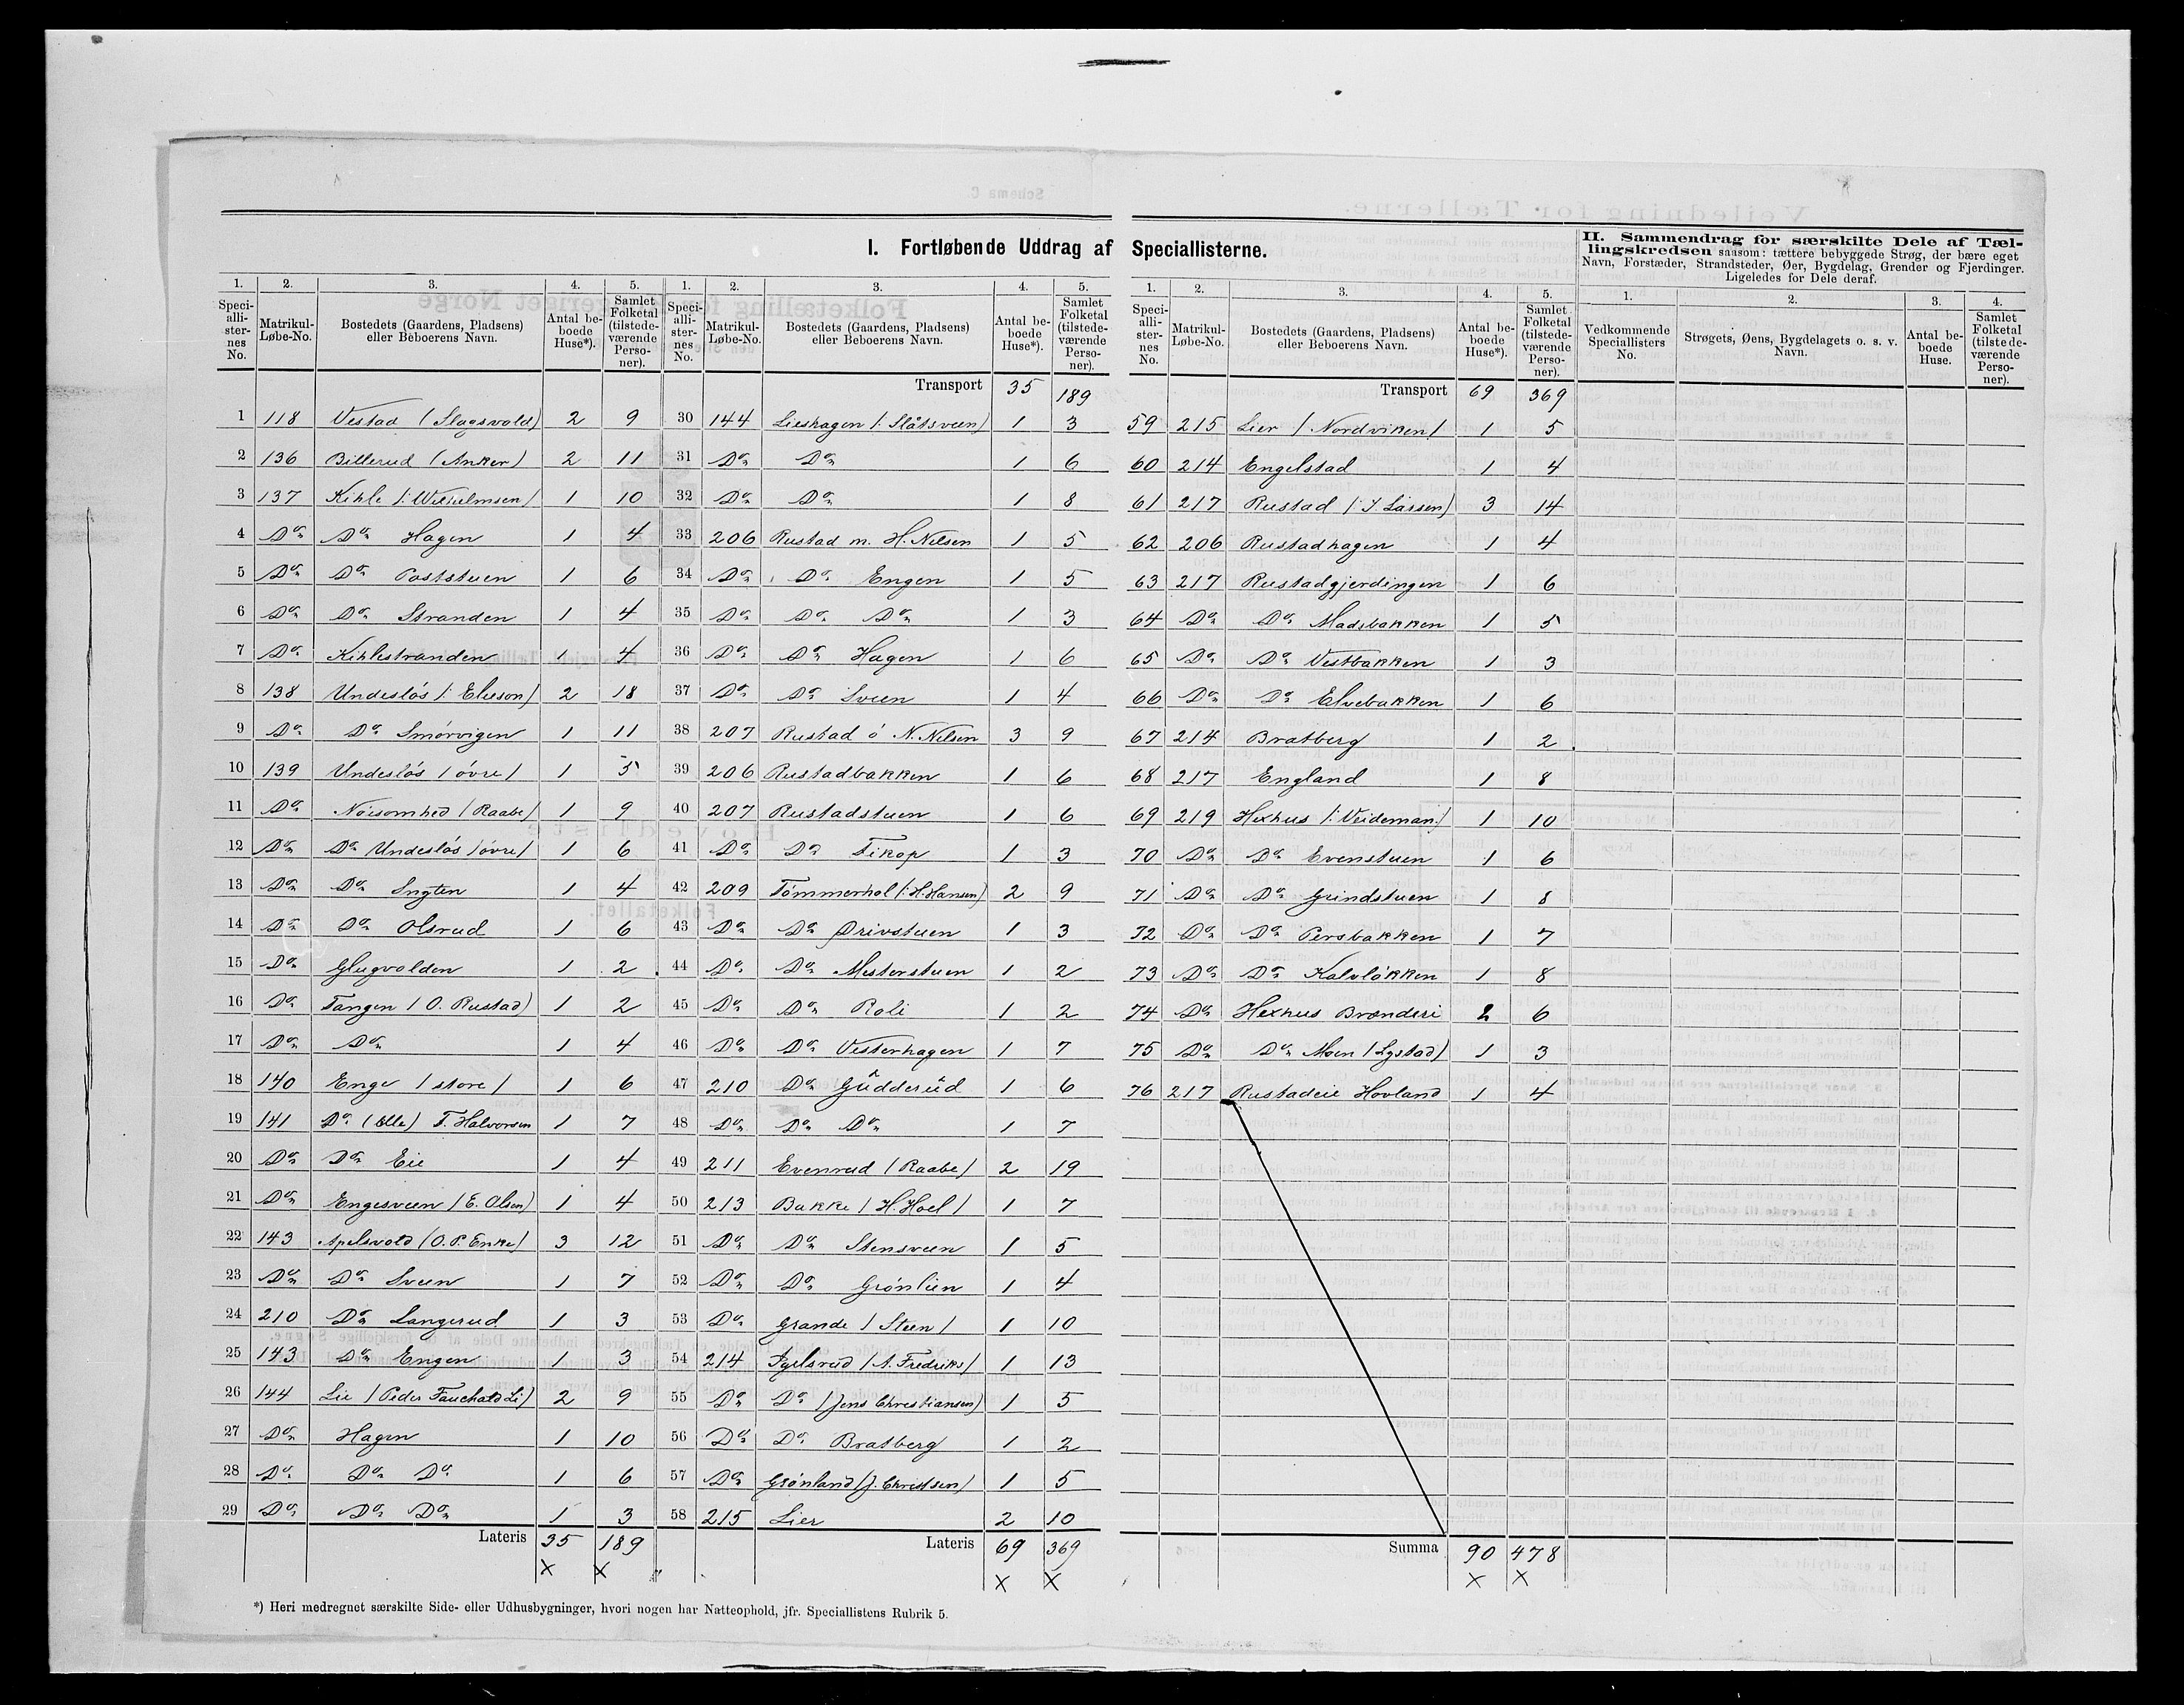 I. Fortløbende Uddrag af Speciallisterne.
II. Sammendrag for særskilte Dele af Tællingskredsen saasom: tættere bebyggede Strøg, der bære eget
Navn, Forstæder, Strandsteder, Øer, Bygdelag, Grender og Fjerdinger.
Ligeledes for Dele deraf.
1. 2. 3. 4. 5.
Speciallisternes No. Matrikul-Løbe-No. Bostedets (Gaardens, Pladsens) eller Beboerens Navn. Antal beboede Huse*). Samlet Folketal (tilstedeværende Personer).
1 118 Vestad (Slagsvold) 2 9
2 136 Billerud (Anker) 2 11
3 137 Kihle (: Wilhelmsen) 1 10
4 Do Do Hagen 1 4
5 Do Do Poststuen 1 6
6 Do Do Stranden 1 4
7 Do Kihlestranden 1 4
8 138 Undesløs (: Elieson) 2 18
9 Do Do Smörvigen 1 11
10 139 Undeslós / óvre / 1 5
11 Do Nöisomhed (Raabe) 1 9
12 Do Do Undeslós / óvre / 1 6
13 Do Do 1 4
14 Do Do Olsrud 1 6
15 Do Glugvolden 1 2
16 Do Tangen (O. Rustad) 1 2
17 Do Do 1 4
18 140 Enge / store / 1 6
19 141 Do (lille) T. Halvorsen 1 7
20 Do Do Eie 1 4
21 Do Engesveen (E. Olsen) 1 4
22 143 Apelsvold (O. P. Enke) 3 12
23 Do Do Sveen 1 7
24 210 Do Langerud 1 3
25 143 Do Engen 1 3
26 144 Lie (Peder Fauchald Li) 2 9
27 Do Hagen 1 10
28 Do Do Do 1 6
29 Do Do Do 1 3
Lateris 35 189
1. 2. 3. 4. 5.
Speciallisternes No. Matrikul-Løbe-No. Bostedets (Gaardens, Pladsens) eller Beboerens Navn. Antal beboede Huse*). Samlet Folketal (tilstedeværende Personer).
Transport 35 189
30 144 Lieshagen (: Slåtsveen) 1 3
31 Do Do 1 6
32 Do Do 1 8
33 206 Rustad m. H. Nilsen 1 5
34 Do Do Engen 1 5
35 Do Do Do 1 3
36 Do Do Hagen 1 6
37 Do Do Sveen 1 4
38 207 Rustad ó N. Nilsen 3 9
39 206 Rustadbakken 1 6
40 207 Rustadstuen 1 6
41 Do Do Tikop 1 3
42 209 Tömmerhol (: H. Hansen) 2 9
43 Do Do Drivstuen 1 3
44 Do Do Mesterstuen 1 2
45 Do Do Roli 1 2
46 Do Do Vesterhagen 1 7
47 210 Do Gudderud 1 6
48 Do Do Do 1 7
49 211 Evenrud (Raabe) 2 19
50 213 Bakke / H. Hoel / 1 7
51 Do Do Stensveen 1 5
52 Do Do Grónlien 1 4
53 Do Grande / Steen / 1 10
54 214 (A. Fredriks) 1 13
55 Do Do (Jens Christiansen) 1 5
56 Do Do Bratberg 1 2
57 Do Grónland (J. Christsen) 1 5
58 215 Lier 2 10
Lateris 69 369
1. 2. 3. 4. 5.
Speciallisternes No. Matrikul-Løbe-No. Bostedets (Gaardens, Pladsens) eller Beboerens Navn. Antal beboede Huse*). Samlet Folketal (tilstedeværende Personer).
Transport 69 369
59 215 Lier / Nordviken / 1 5
60 214 Engelstad 1 4
61 217 Rustad (: J. Larsen) 3 14
62 206 Rustadhagen 1 4
63 217 Rustadgjerdingen 1 6
64 Do Do Madsbakken 1 5
65 Do Do Vestbakken 1 3
66 Do Do Elvebakken 1 6
67 214 Bratberg 1 2
68 217 England 1 8
69 219 Hexhus (: Veideman:) 1 10
70 Do Do Evenstuen 1 6
71 Do Do Grindstuen 1 8
72 Do Do Persbakken 1 7
73 Do Do Kalvlókken 1 8
74 Do Hexhus Brænderi 2 6
75 Do Do Moen (Lystad) 1 3
76 217 Rustadeie Hovland 1 4
Summa 90 478
1. 2. 3. 4.
Vedkommende Speciallisters No. Strøgets, Øens, Bygdelagets o. s. v. Navn. Antal beboede Huse. Samlet Folketal (tilstedeværende Personer).
*) Heri medregnet særskilte Side- eller Udhusbygninger, hvori nogen har Natteophold, jfr. Speciallistens Rubrik 5.